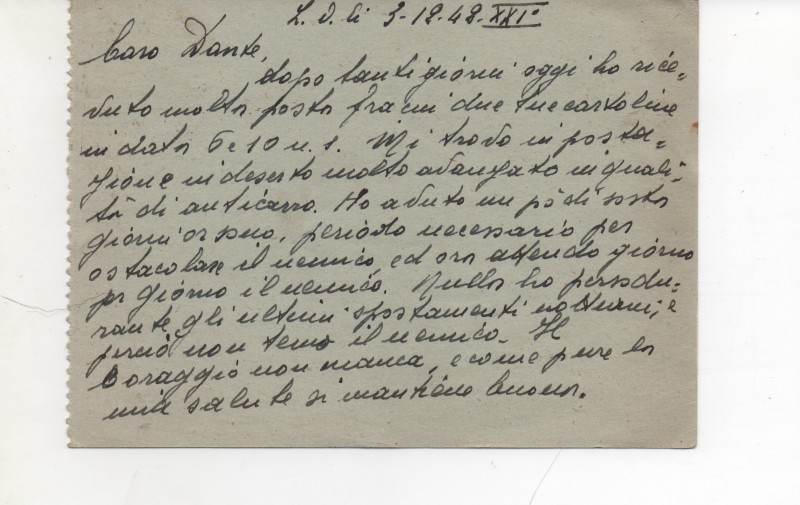 Z. O. lì 3-12-42-XXI°
Caro Dante,
dopo tanti giorni oggi ho rice=
vuto molta posta fra cui due tue cartoline
in data 6 e 10 u.s. Mi trovo in posta=
zione in deserto molto avanzato in quali=
tà di anticarro. Ho avuto un pò di sosta
giorni or sono, periodo necessario per
ostacolare il nemico, ed ora attendo giorno
per giorno il nemico. Nulla ho perso du=
rante gli ultimi spostamenti notturni, e
perciò non temo il nemico. Il
Coraggio non manca, e come pure la
mia salute si mantiene buona.